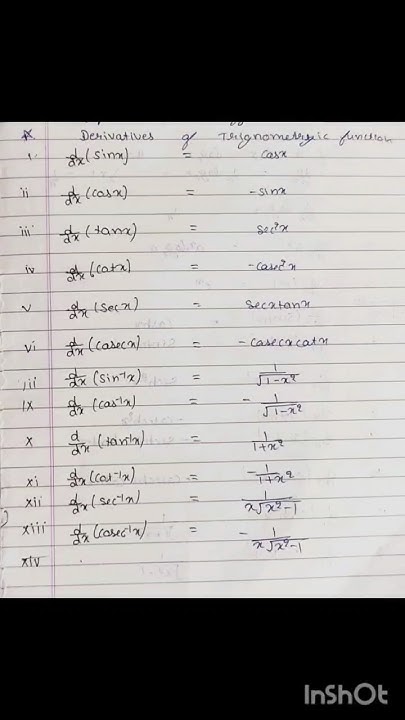 * Derivatives of Trignometryic function
i. d/dx (sinx) = cosx
ii d/dx (cosx) = -sinx
iii d/dx (tanx) = sec²x
iv d/dx (cotx) = -cosec²x
v d/dx (secx) = secxtanx
vi d/dx (cosecx) = -cosecxcotx
,ii d/dx (sin⁻¹x) = 1/√1-x²
ix d/dx (cos⁻¹x) = - 1/√1-x²
x d/dx (tan⁻¹x) = 1/1+x²
xi d/dx (cot⁻¹x) = -1/1+x²
xii d/dx (sec⁻¹x) = 1/x√x²-1
xiii d/dx (cosec⁻¹x) = - 1/x√x²-1
xiv
InShOt